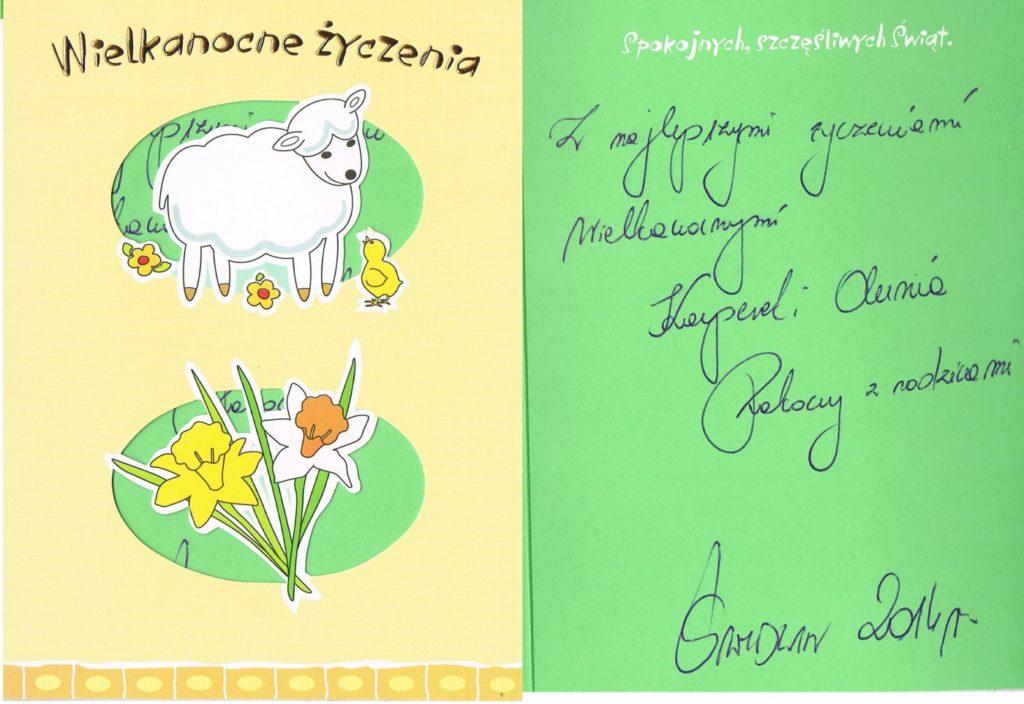 Wielkanocne życzenia
Spokojnych, szczęśliwych Świąt.
Z najlepszymi życzeniami
Wielkanocnymi
Kacperek i Olunia
z rodzicami
2014 r.